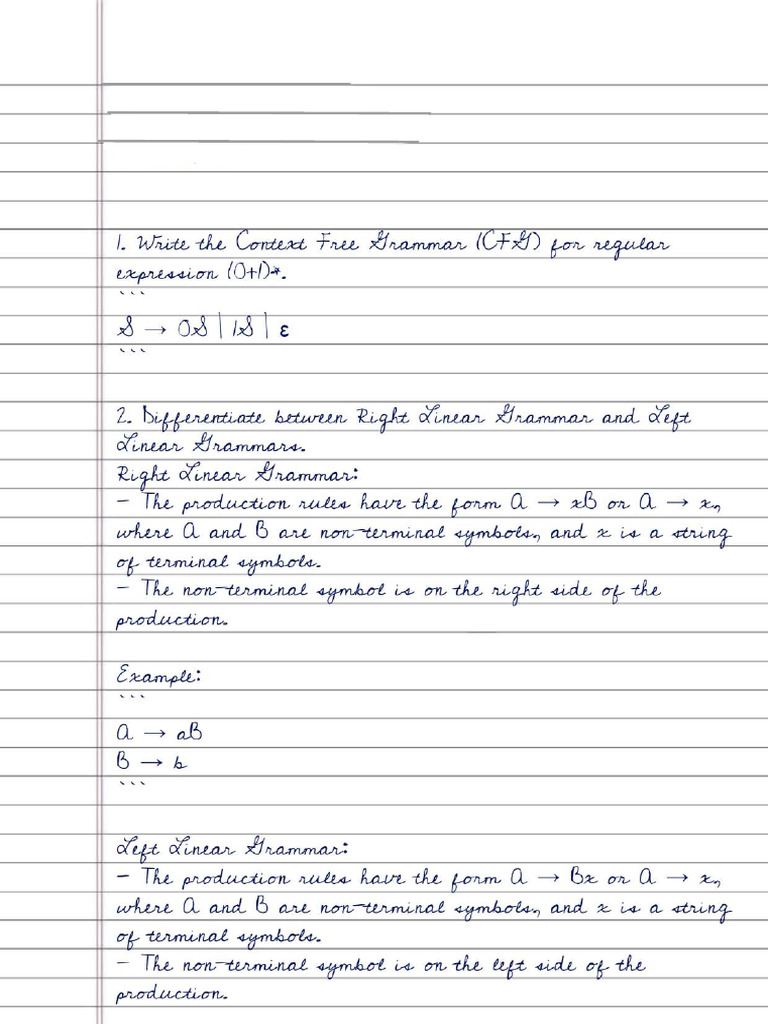 1. Write the Context Free Grammar (CFG) for regular
expression (0+1)*.
```
S → 0S | 1S | ε
```
2. Differentiate between Right Linear Grammar and Left
Linear Grammars.
Right Linear Grammar:
- The production rules have the form A → xB or A → x,
where A and B are non-terminal symbols, and x is a string
of terminal symbols.
- The non-terminal symbol is on the right side of the
production.
Example:
```
A → aB
B → b
```
Left Linear Grammar:
- The production rules have the form A → Bx or A → x,
where A and B are non-terminal symbols, and x is a string
of terminal symbols.
- The non-terminal symbol is on the left side of the
production.